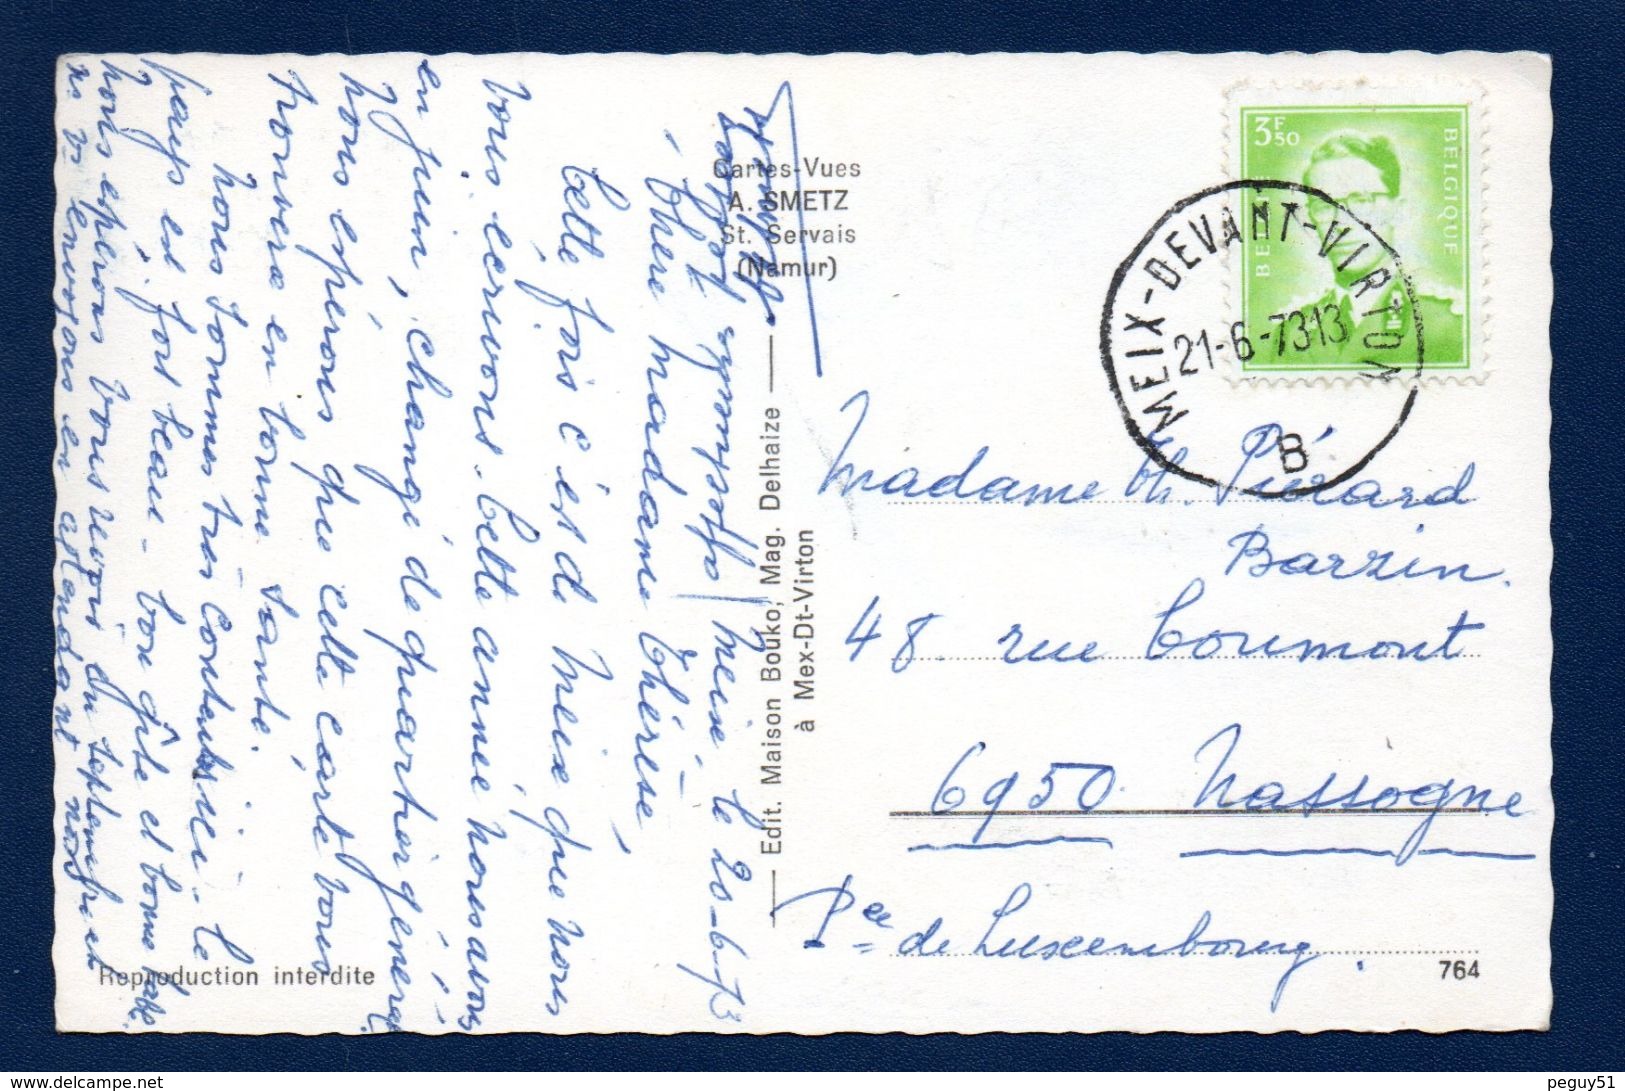 Meix le 20-6-73
Chère Madame Thérèse,
Cette fois c'est de Meix que nous
vous écrivons. Cette année nous avons
en juin, changé de quartier général
Nous espérons que cette carte vous
trouvera en bonne santé.
Nous sommes très contents ici. Le
pays est fort beau - bon gîte et bonne table.
Nous espérons vous revoir du 1er septembre
ns vs envoyons en attendant nos
Cartes-Vues
A. SMETZ
St. Servais
(Namur)
Edit. Maison Bouko, Mag. Delhaize
à Mex-Dt-Virton
Reproduction interdite
3F50
BELGIQUE
BELGIË
MEIX-DEVANT-VIRTON
21-6-7313
B
Madame Th. Piérard
Barzin.
48 rue Coumont
6950 Nassogne
Pce de Luxembourg.
764
www.delcampe.net
peguy51